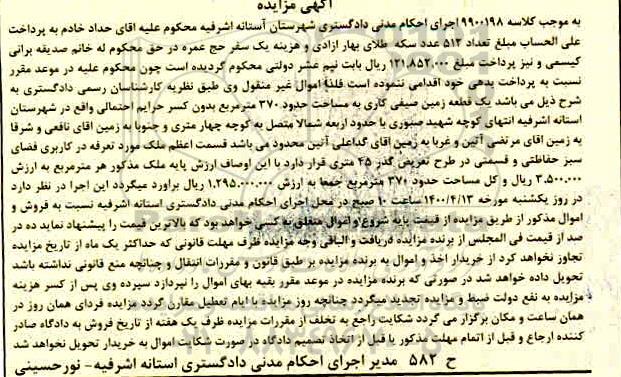 آگهی مزایده
به موجب کلاسه ۹۹۰۰۱۹۸ اجرای احکام مدنی دادگستری شهرستان آستانه اشرفیه محکوم علیه اقای حداد خادم به پرداخت
علی الحساب مبلغ تعداد ۵۱۲ عدد سکه طلای بهار ازادی و هزینه یک سفر حج عمره در حق محکوم له خانم صدیقه براتی
کیسمی و نیز پرداخت مبلغ ۱۲۱،۸۵۲،۰۰۰ ریال بابت نیم عشر دولتی محکوم گردیده است چون محکوم علیه در موعد مقرر
نسبت به پرداخت بدهی خود اقدامی ننموده است فلذا اموال غیر منقول وی طبق نظریه کارشناسان رسمی دادگستری به
شرح ذیل می باشد یک قطعه زمین صیفی کاری به مساحت حدود ۳۷۰ مترمربع بدون کسر حرایم احتمالی واقع در شهرستان
استانه اشرفیه انتهای کوچه شهید صبوری با حدود اربعه شمالا متصل به کوچه چهار متری و جنوبا به زمین اقای نافعی و شرقا
به زمین اقای مرتضی آتین و غربا به زمین اقای گداعلی آتین محدود می باشد قسمت اعظم ملک مورد تعرفه در کاربری فضای
سبز حفاظتی و قسمتی در طرح تعریض گذر ۴۵ متری قرار دارد با این اوصاف ارزش پایه ملک مذکور هر مترمربع به ارزش
۳،۵۰۰،۰۰۰ ریال و کل مساحت حدود ۳۷۰ مترمربع جمعا به ارزش ۱،۲۹۵،۰۰۰،۰۰۰ ریال براورد میگردد این اجرا در نظر دارد
در روز یکشنبه مورخه ۱۴۰۰/۴/۱۳ ساعت ۱۰ صبح در محل اجرای احکام مدنی دادگستری استانه اشرفیه نسبت به فروش و
اموال مذکور از طریق مزایده از قیمت پایه شروع و اموال متعلق به کسی خواهد بود که بالاترین قیمت را پیشنهاد نماید ده در
صد از قیمت فی المجلس از برنده مزایده دریافت و الباقی وجه مزایده ظرف مهلت قانونی که حداکثر یک ماه از تاریخ مزایده
تجاوز نخواهد کرد از خریدار اخذ و اموال به برنده مزایده بر طبق قانون و مقررات انتقال و چنانچه منع قانونی نداشته باشد
تحویل داده خواهد شد در صورتی که برنده مزایده در موعد مقرر بقیه بهای اموال را نپردازد سپرده وی پس از کسر هزینه
مزایده به نفع دولت ضبط و مزایده تجدید میگردد چنانچه روز مزایده با ایام تعطیل مقارن گردد مزایده فردای همان روز در
همان ساعت و مکان برگزار می گردد شکایت راجع به تخلف از مقررات مزایده ظرف یک هفته از تاریخ فروش به دادگاه صادر
کننده ارجاع و قبل از اتمام مهلت مذکور یا قبل از اتخاذ تصمیم دادگاه در صورت شکایت اموال به خریدار تحویل نخواهد شد
ح ۵۸۲ مدیر اجرای احکام مدنی دادگستری استانه اشرفیه - نورحسینی